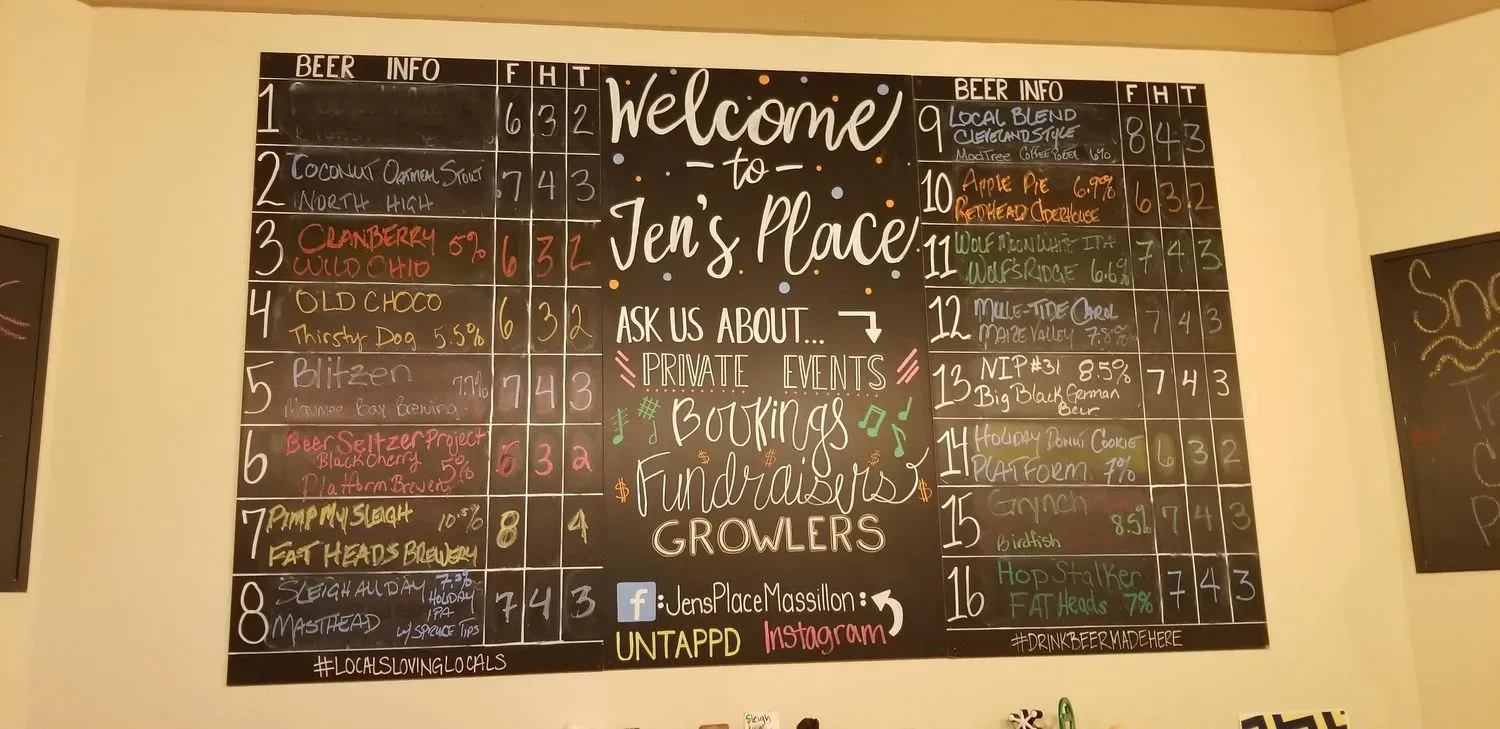 BEER INFO F H T
1 6 3 2
2 COCONUT OATMEAL STOUT 7 4 3
NORTH HIGH
3 CRANBERRY 5% 6 3 2
WILD OHIO
4 OLD CHOCO 6 3 2
Thirsty Dog 5.5%
5 Blitzen 7.7% 7 4 3
Maumee Bay Brewing
6 Beer Seltzer Project 6 3 2
Black Cherry 5%
Platform Brewery
7 PIMP MY SLEIGH 10.5% 8 4
FAT HEADS BREWERY
8 SLEIGH ALL DAY 7.3% 7 4 3
HOLIDAY
IPA
MASTHEAD W/ SPRUCE TIPS
#LOCALSLOVINGLOCALS
Welcome
- to -
Jen's Place
ASK US ABOUT...
PRIVATE EVENTS
Bookings
$ $ $
$ Fundraisers $
GROWLERS
f : JensPlaceMassillon :
UNTAPPD Instagram
BEER INFO F H T
9 LOCAL BLEND 8 4 3
CLEVELAND STYLE
MadTree COFFEE PORTER 6%
10 APPLE PIE 6.9% 6 3 2
REDHEAD CIDERHOUSE
11 WOLF MOON WHITE IPA 7 4 3
WOLF'S RIDGE 6.6%
12 MULE-TIDE CAROL 7 4 3
MAIZE VALLEY
13 NIP #31 8.5% 7 4 3
Big Black German
Beer
14 HOLIDAY DONUT COOKIE 6 3 2
PLATFORM 7%
15 Grynch 7 4 3
Birdfish 8.5%
16 Hop Stalker 7 4 3
FAT Heads 7%
#DRINKBEERMADEHERE
Sleigh